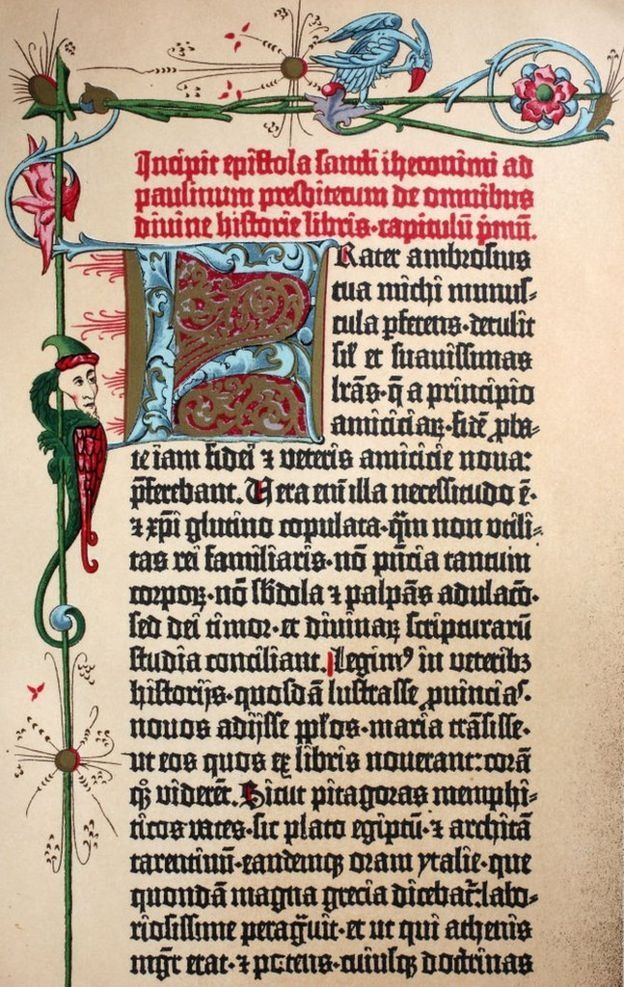 Incipit epistola sancti iheronimi ad
paulinum presbiterum de omnibus
divine historie libris·capitulū pmū.
Frater ambrosius
tua michi munus-
cula pferens·detulit
sil' et suavissimas
lrās·q̄ a principio
amiciciaꝝ·fidē ꝓba-
te iam fidei ⁊ veteris amicicie nova:
pferebant. Vera enī illa necessitudo ē·
⁊ xpī glutino copulata·qm̄ non utili-
tas rei familiaris·nō pn̄cia tantum
corpoꝝ·nō sb'dola ⁊ palpās adulacō·
sed dei timor·et divinaꝝ scripturarū
studia conciliant. Legimꝰ in veteribꝫ
historijs·quosdā lustrasse ꝓvincias·
novos adijsse ppl'os·maria trāsisse·
ut eos quos ex libris noverant: corā
qꝫ viderēt. Sicut pitagoras memphi-
ticos vates·sic plato egiptū·⁊ architā
tarentinū·eandemqꝫ oram ytalie·que
quondā magna grecia dicebat̄: labo-
riosissime peragvit·et ut qui athenis
mgr̄ erat·⁊ potens·cuiusqꝫ doctrinas